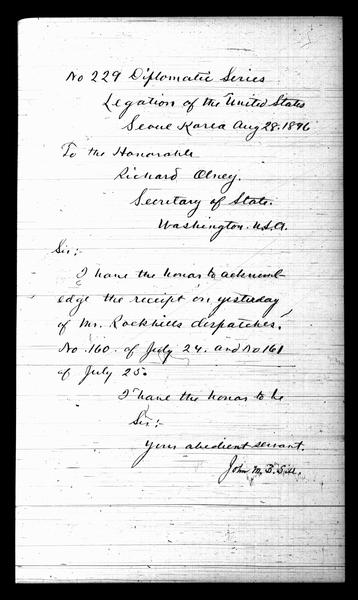 No 229 Diplomatic Series
Legation of the United States
Seoul Korea Aug 28. 1896
To the Honorable
Richard Olney.
Secretary of State.
Washington. U.S.A.
Sir:-
I have the honor to acknowl-
edge the receipt on yesterday
of Mr. Rockhills despatches,
No. 160. of July 24. and No 161
of July 25.
I have the honor to be
Sir:-
Your obedient servant.
John M. B. Sill.